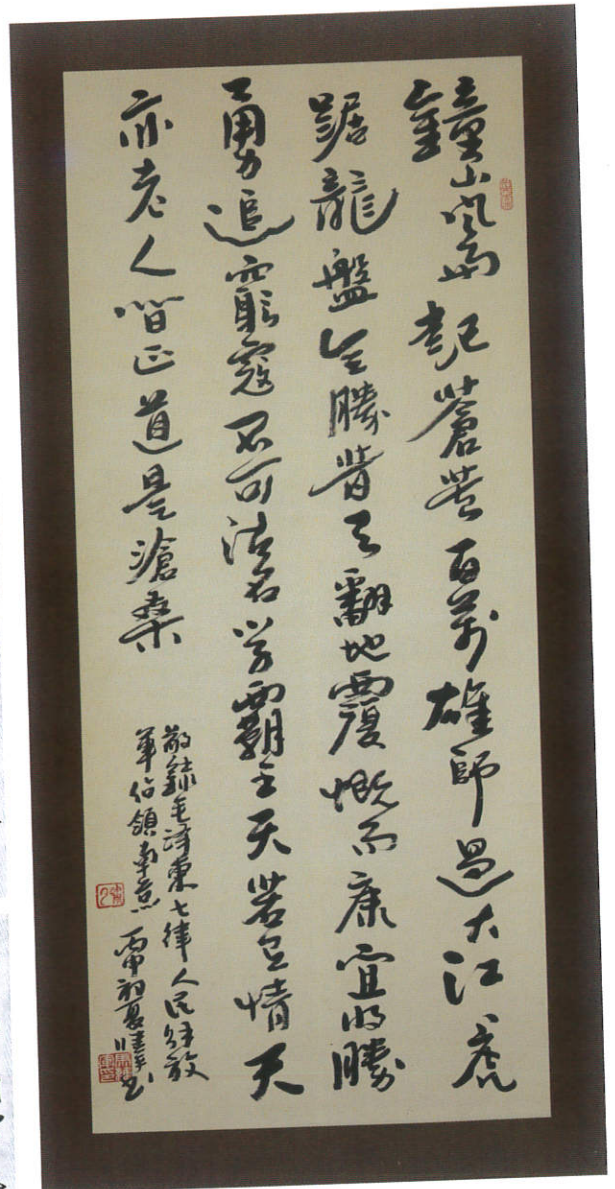 鐘山風雨起蒼黃百萬雄師過大江虎
踞龍盤今勝昔天翻地覆慨而康宜將勝
勇追窮寇不可沽名學霸王天若有情天
亦老人間正道是滄桑
敬錄毛澤東七律人民解放
軍佔領南京 丙申初夏 书